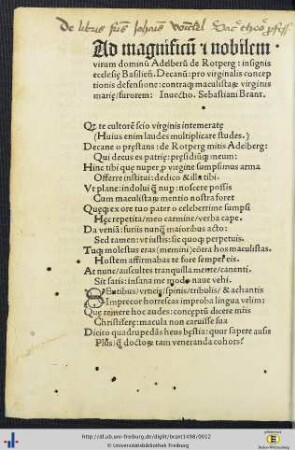 De libris
Ad magnificū ⁊ nobilem
virum dominū Adelberū de Rotperg: insignis
ecclesię Basilieñ. Decanū: pro virginalis concep
tionis defensione: contraq; maculistaȝ virginis
marię furorem: Inuectio. Sebastiani Brant.
Qȝ te cultorē scio virginis intemeratę
(Huius enim laudes multiplicare studes.)
Decane o pręstans: de Rotperg mitis Adelberg:
Qui decus es patrię: pręsidiūq; meum:
Hinc tibi que nuper ꝓ virgine sumpsimus arma
Offerre institui: dedico & illa tibi.
Vt plane: indolui q̄ nup: noscere possis
Cum maculistaȝ mentio nostra foret
Queq; ex ore tuo pater o celeberrime sumpsi
Hęc repetita meo carmine verba cape.
Da veniā: furiis nunq̄ maioribus acto:
Sed tamen: vt iustis: sic quoq; perpetuis.
Tuq; molestus eras (memini) cōtra hos maculistas.
Hostem affirmabas te fore semper eis.
At nunc auscultes tranquilla mente canenti.
Sit satis: insana me modo naue vehi.
SEntibus vrticis spinis tribulis & achantis
Imprecor horrescas improba lingua velim:
Que reniere hoc audes: conceptū dicere mitis
Christiferę: macula non caruisse sua
Dicito quadrupedās heus bestia: quur sapere ausis
Plus q̄ doctoȝ tam veneranda cohors?
http://dl.ub.uni-freiburg.de/diglit/brant1498/0012
© Universitätsbibliothek Freiburg